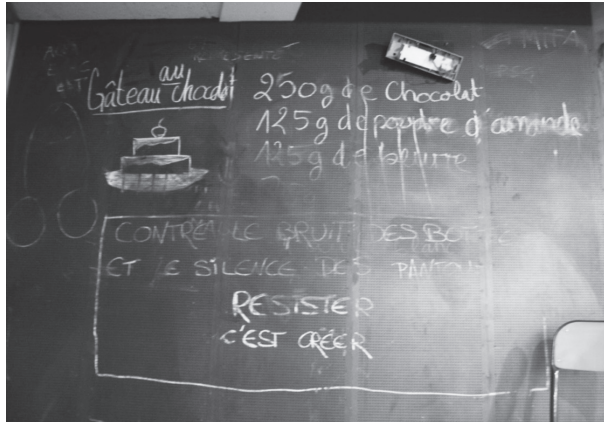 REPRESENTE
EST
Gâteau au chocolat
250g de Chocolat
125g de poudre d'amande
125g de beurre
CONTRE LE BRUIT DES
ET LE SILENCE DES
RESISTER
C'EST CRÉER